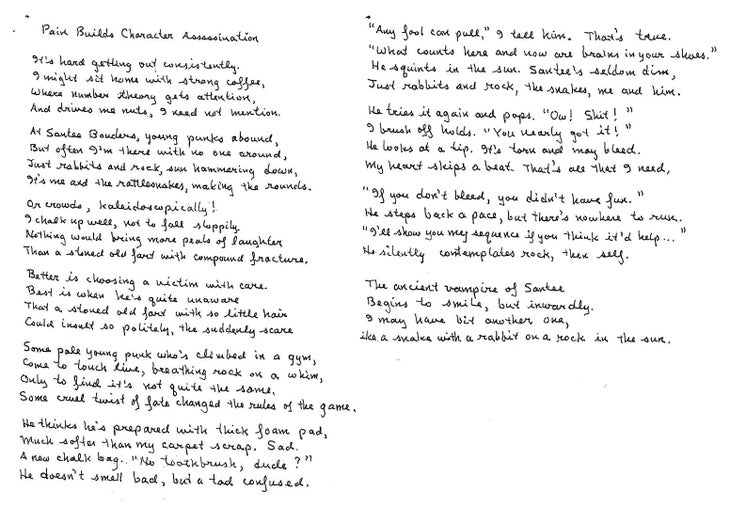 Pain Builds Character Assassination
It's hard getting out consistently.
I might sit home with strong coffee,
Where number theory gets attention,
And drives me nuts, I need not mention.
At Santee Bouders, young punks abound,
But often I'm there with no one around,
Just rabbits and rock, sun hammering down,
It's me and the rattlesnakes, making the rounds.
Or crowds, kaleidoscopically!
I chalk up well, not to fall sloppily.
Nothing would bring more peals of laughter
Than a stoned old fart with compound fracture.
Better is choosing a victim with care.
Best is when he's quite unaware
That a stoned old fart with so little hair
Could insult so politely, the suddenly scare
Some pale young punk who's climbed in a gym,
Come to touch live, breathing rock on a whim,
Only to find it's not quite the same.
Some cruel twist of fate changed the rules of the game.
He thinks he's prepared with thick foam pad,
Much softer than my carpet scrap. Sad.
A new chalk bag.. "No toothbrush, dude?"
He doesn't smell bad, but a tad confused.
"Any fool can pull," I tell him. That's true.
"What counts here and now are brains in your shoes."
He squints in the sun. Santee's seldom dim,
Just rabbits and rock, the snakes, me and him.
He tries it again and pops. "Ow! Shit!"
I brush off holds. "You nearly got it!"
He looks at a tip. It's torn and may bleed.
My heart skips a beat. That's all that I need,
"If you don't bleed, you didn't have fun."
He steps back a pace, but there's nowhere to run.
"I'll show you my sequence if you think it'd help..."
He silently contemplates rock, then self.
The ancient vampire of Santee
Begins to smile, but inwardly.
I may have bit another one,
ike a snake with a rabbit on a rock in the sun.